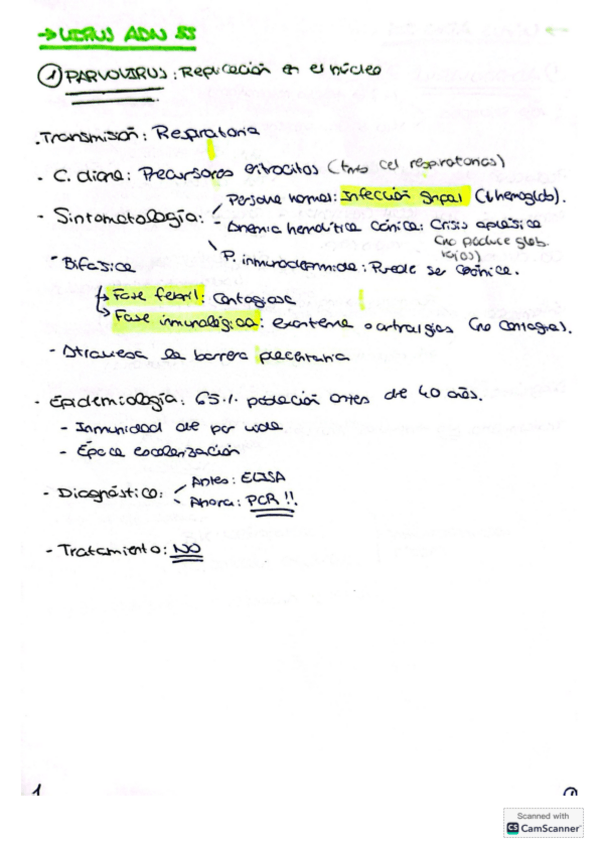 → VIRUS ADN SS
① PARVOVIRUS: Replicación en el núcleo
. Transmisión: Respiratoria
- C. diana: Precursores eritrocitos (tras cel respiratorias)
- Sintomatología: - Persona normal: Infección gripal (↓hemoglob).
- Anemia hemolítica crónica: Crisis aplásica
(no produce glob.
rojos)
- P. inmunodeprimido: Puede ser crónica.
- Bifásica
↳ Fase febril: Contagiosa
↳ Fase inmunológica: exantema o artralgias (no contagia).
- Atraviesa la barrera placentaria
- Epidemiología: 65% población antes de 40 años.
- Inmunidad de por vida
- Época escolarización
- Diagnóstico: - Antes: ELISA
- Ahora: PCR!!
- Tratamiento: NO
1
Scanned with
CS CamScanner